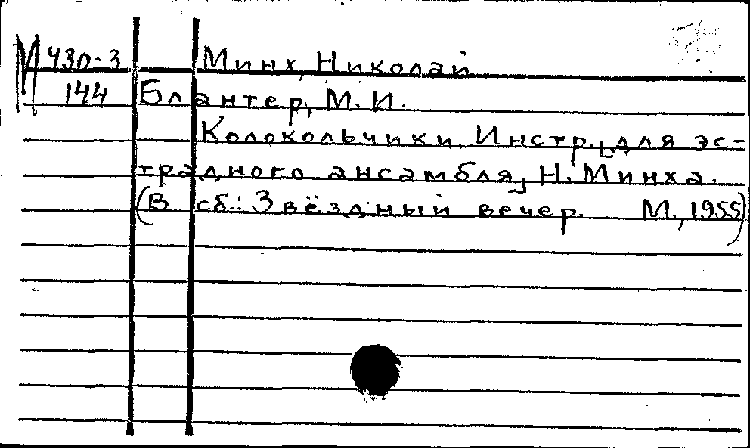 М 430-3 Минх, Николай
144 Блантер, М. И.
Колокольчики. Инстр. [для эс-
традного ансамбля] Н. Минха.
(В сб.: Звёздный вечер. М., 1955)